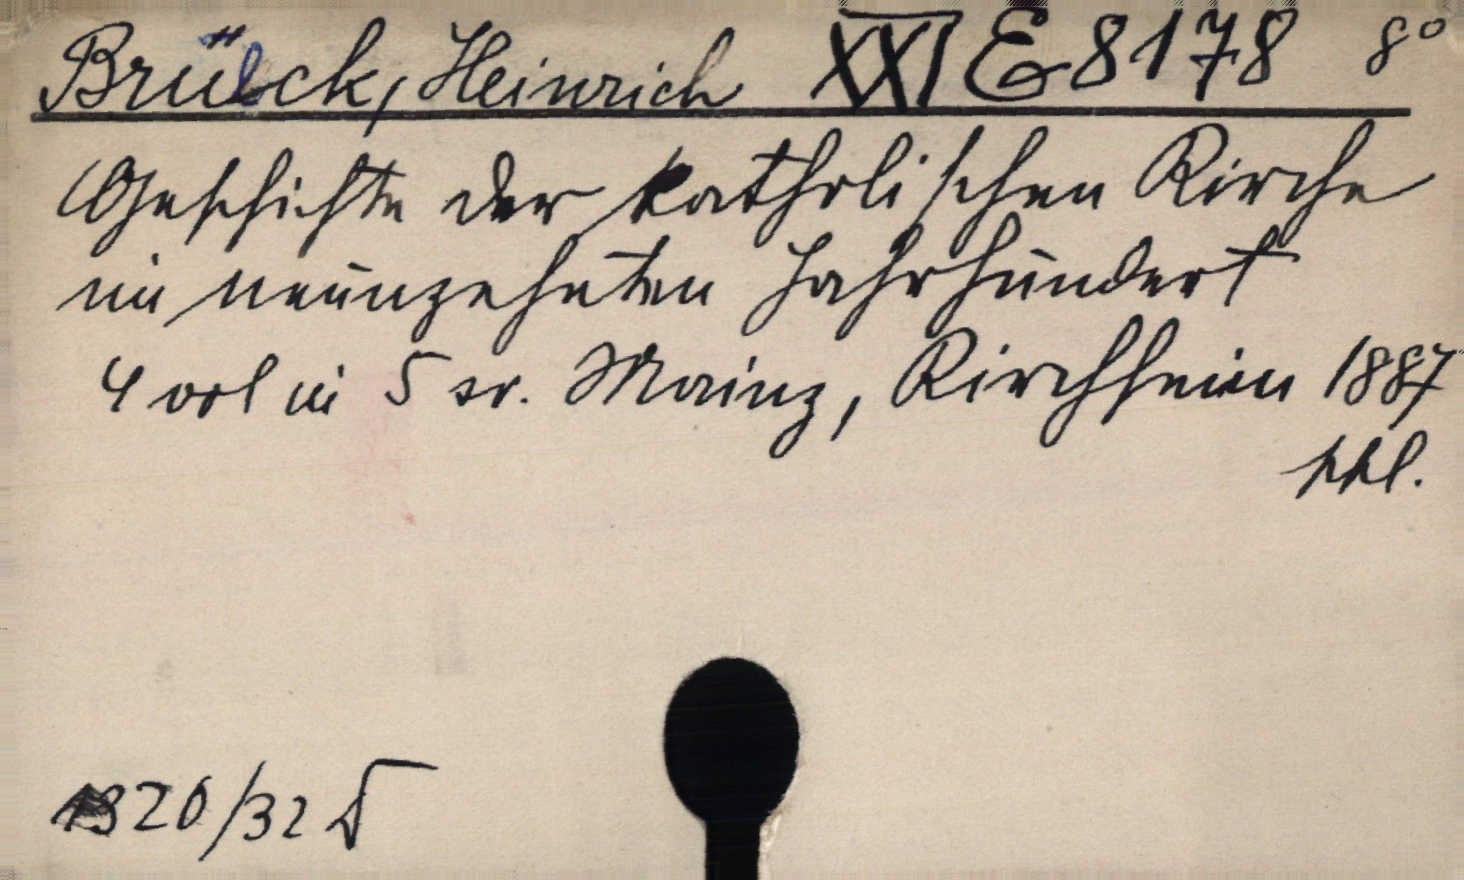 Brück, Heinrich XXI E 8178 8°
Geschichte der katholischen Kirche
im neunzehnten Jahrhundert
4 vol in 5 sv. Mainz, Kirchheim 1887
ppl.
1320/32